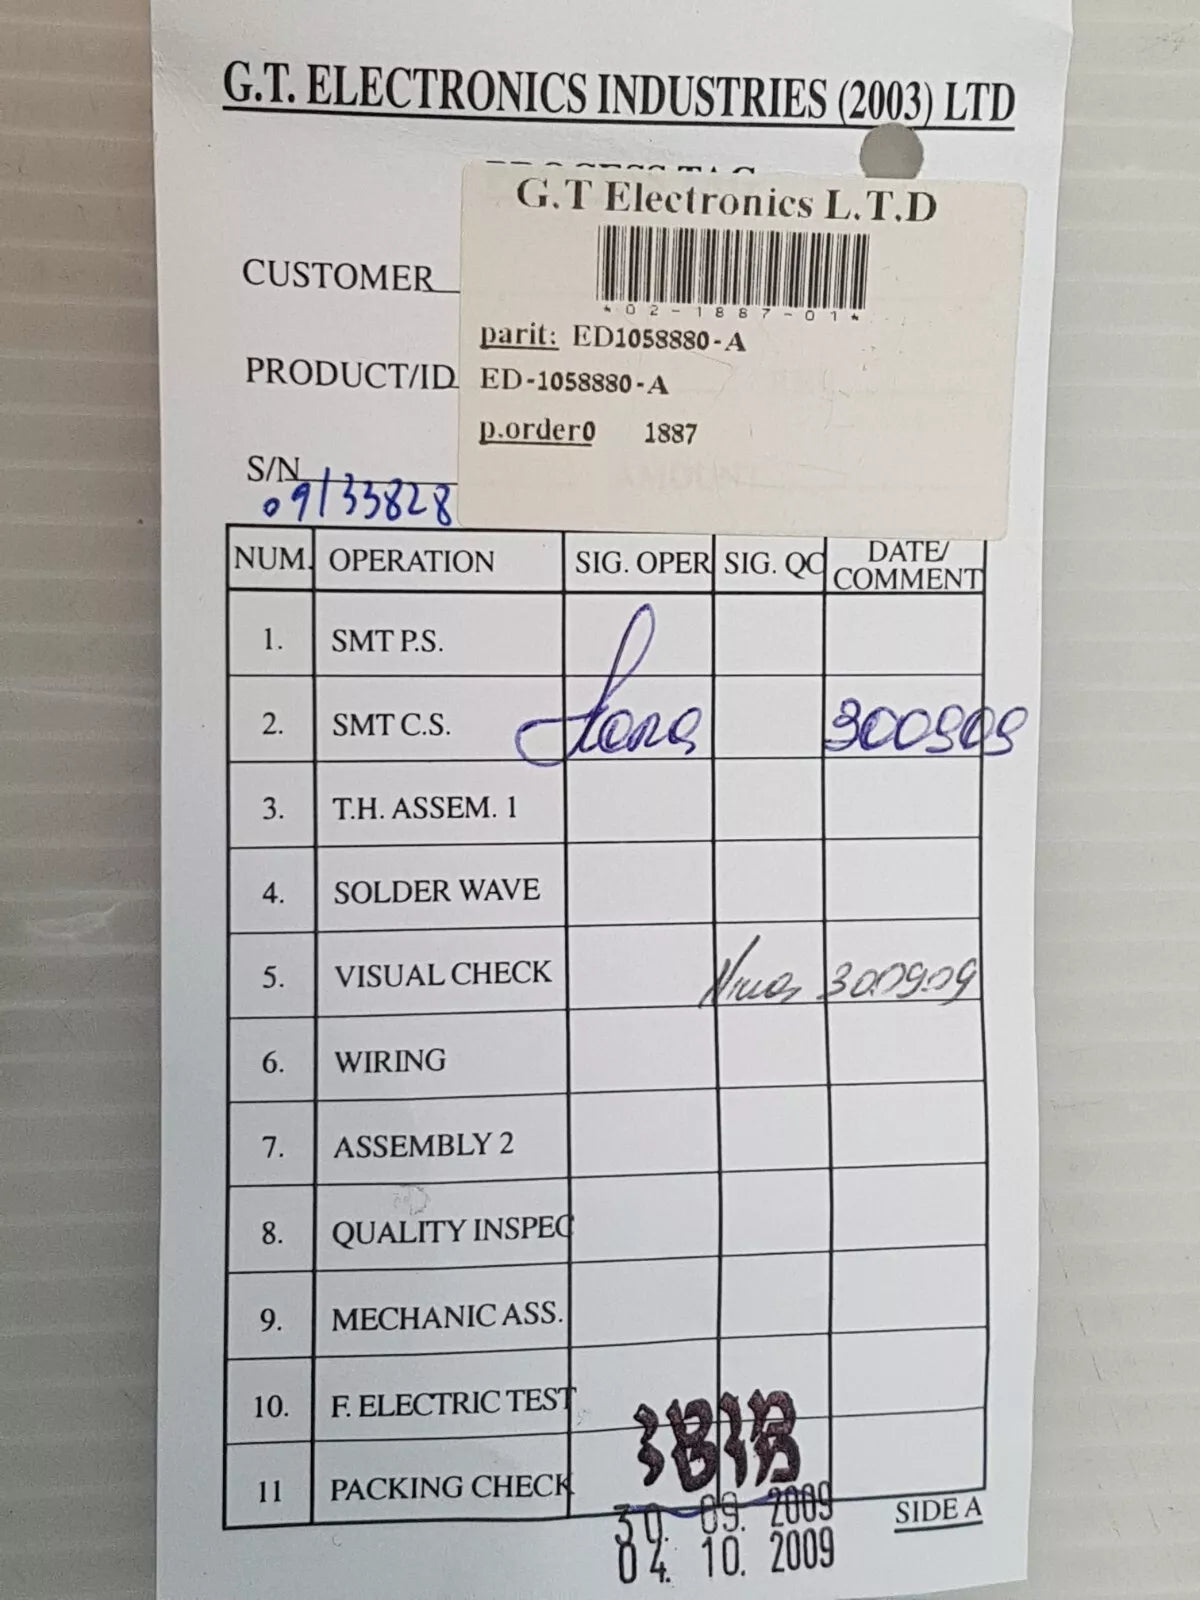 G.T. ELECTRONICS INDUSTRIES (2003) LTD
PROCESS TAG
G.T Electronics L.T.D
*02-1887-01*
CUSTOMER
parit: ED1058880-A
PRODUCT/ID ED-1058880-A
p.order0 1887
S/N 09/33828
NUM. OPERATION SIG. OPER SIG. QC DATE/COMMENT
1. SMT P.S.
2. SMT C.S. 300909
3. T.H. ASSEM. 1
4. SOLDER WAVE
5. VISUAL CHECK 30.09.09
6. WIRING
7. ASSEMBLY 2
8. QUALITY INSPEC
9. MECHANIC ASS.
10. F. ELECTRIC TEST
11 PACKING CHECK
30. 09. 2009
SIDE A
04. 10. 2009